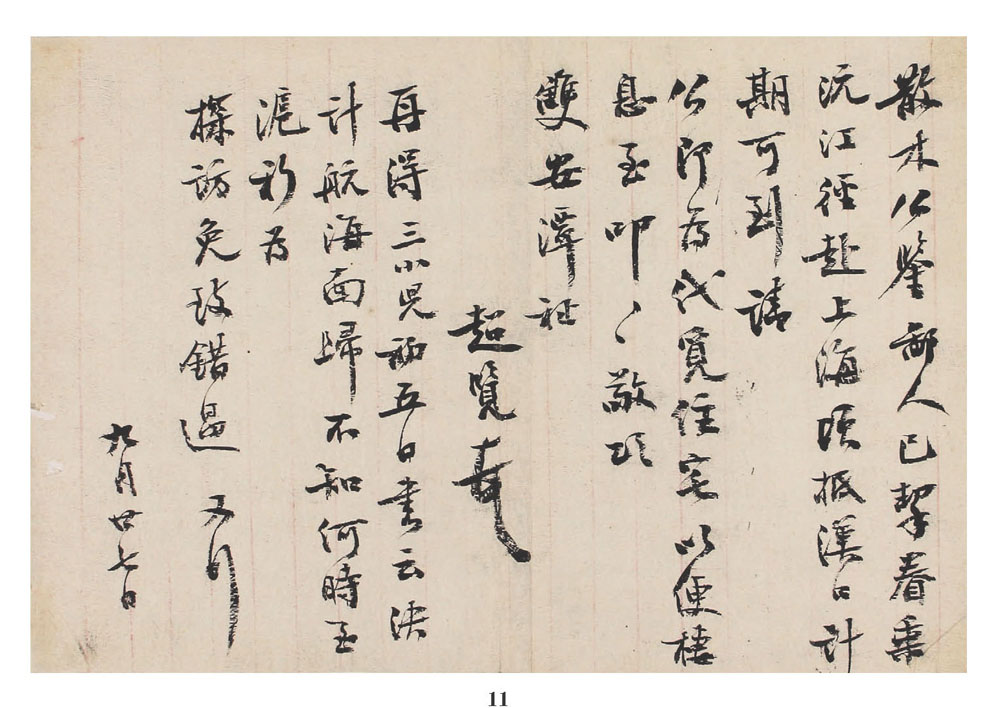 散木公鑒 鄙人已挈眷乘
沅江徑赴上海頃抵漢口計
期可到請
公即為代覓住宅以便棲
息至叩〻敬頌
雙安潭祉
超覽
再得三小兒初五日書云決
計航海而歸不知何時至
滬祈為
探訪免致錯過 又行
九月廿七日
11